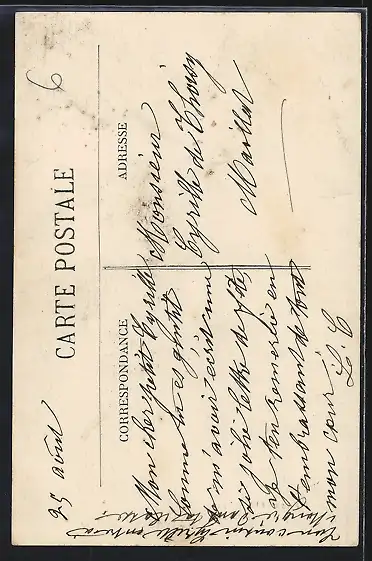 6
CARTE POSTALE
25 août
CORRESPONDANCE
ADRESSE
Mon cher petit Cyrille
Comme tu es gentil
de m'avoir écrit une
si jolie lettre de fête,
je t'en remercie en
t'embrassant de tout
mon cœur.
L. C
Ton cousin Cyrille
Monsieur
Cyrille de Thoisy
Maillot